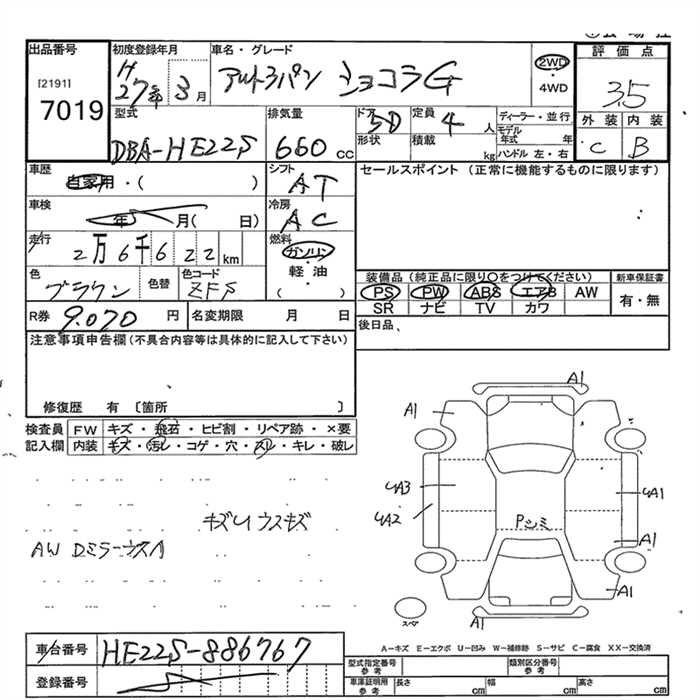 出品番号
[2191]
7019
初度登録年月
H
27年 3月
車名・グレード
アルトラパン ショコラG
2WD
・
4WD
評価点
3.5
外装 内装
C B
型式
DBA-HE22S
排気量
660 cc
ドア
5D
形状
定員
4人
積載
kg
ディーラー・並行
モデル
年式 年
ハンドル 左・右
車歴
自家用・( )
シフト
AT
セールスポイント (正常に機能するものに限ります)
車検
年 月( 日)
冷房
AC
走行
2万6千622km
燃料
ガソリン
・
軽・油
( )
色
ブラウン
色替
色コード
ZFS
装備品(純正品に限り○をつけてください)
PS PW ABS エアB AW
SR ナビ TV カワ
新車保証書
有・無
R券 9.070 円
名変期限 月 日
後日品.
注意事項申告欄(不具合内容等は具体的に記入して下さい)
修復歴 有 〔箇所 〕
検査員
記入欄
FW キズ・飛石・ヒビ割・リペア跡・×要
内装 キズ・汚レ・コゲ・穴・スレ・キレ・破レ
キズUウスキズ
AW Dミラーウス1
A1
A1
UA3
UA2
UA1
Pシミ
A1
A1
A1
スペア
A-キズ E-エクボ U-凹み W-補修跡 S-サビ C-腐食 XX-交換済
車台番号 HE22S-886767
登録番号
型式指定番号
参考
類別区分番号
参考
車庫証明用
参考
長さ cm 幅 cm 高さ cm